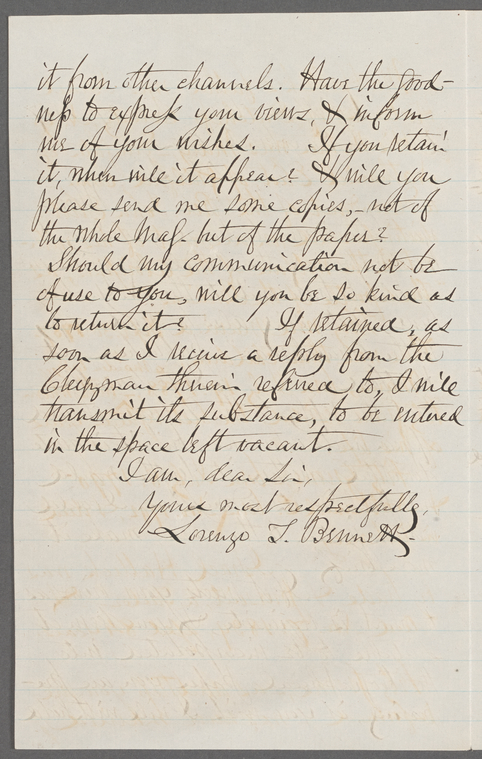 it from other channels. Have the good-
ness to express your views, & inform
me of your wishes. If you retain
it, when will it appear? & will you
please send me some copies,- not of
the whole Mag. but of the paper?
Should my communication not be
of use to you, will you be so kind as
to return it? If retained, as
soon as I receive a reply from the
Clergyman therein referred to, I will
transmit its substance, to be entered
in the space left vacant.
I am, dear Sir,
Yours most respectfully,
Lorenzo T. Bennett.